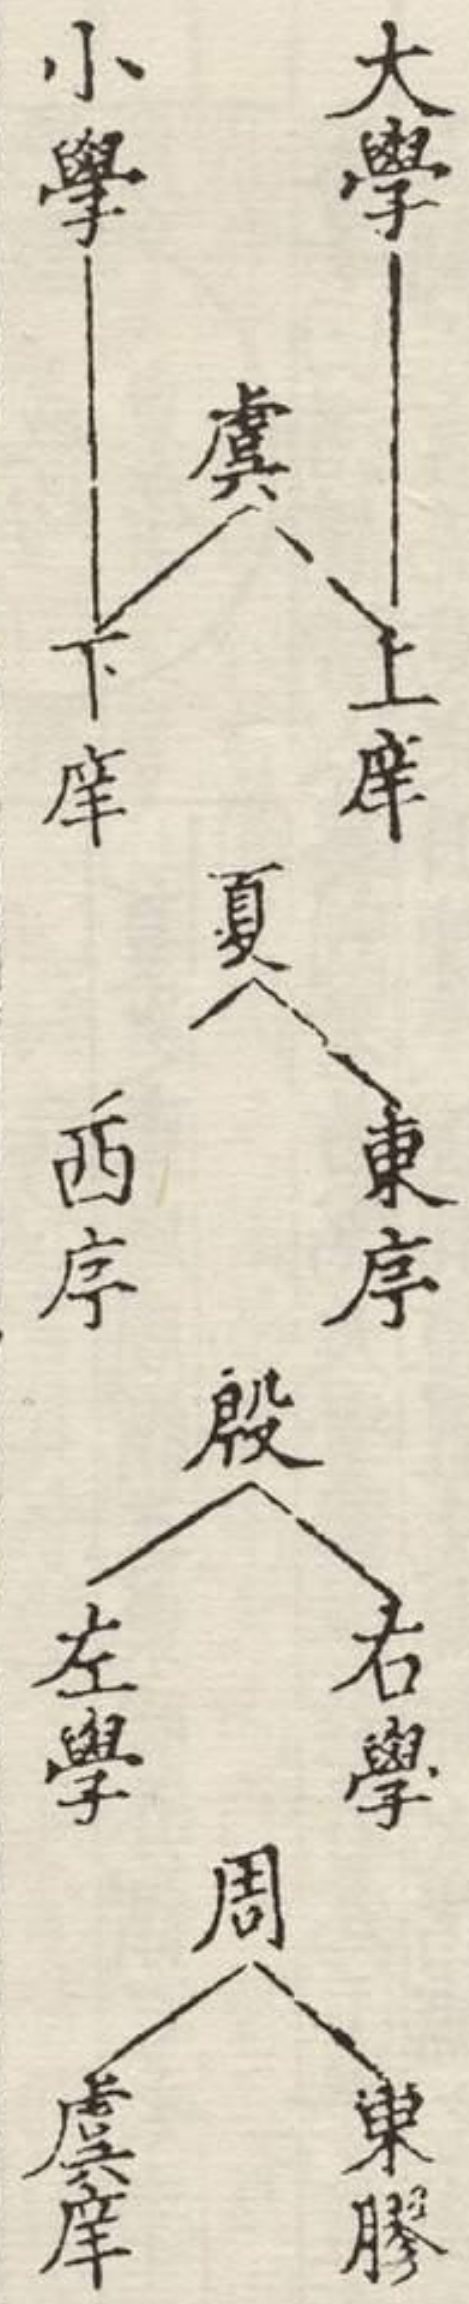 大學
小學
虞
上庠
下庠
夏
東序
西序
殷
右學
左學
周
東膠
虞庠